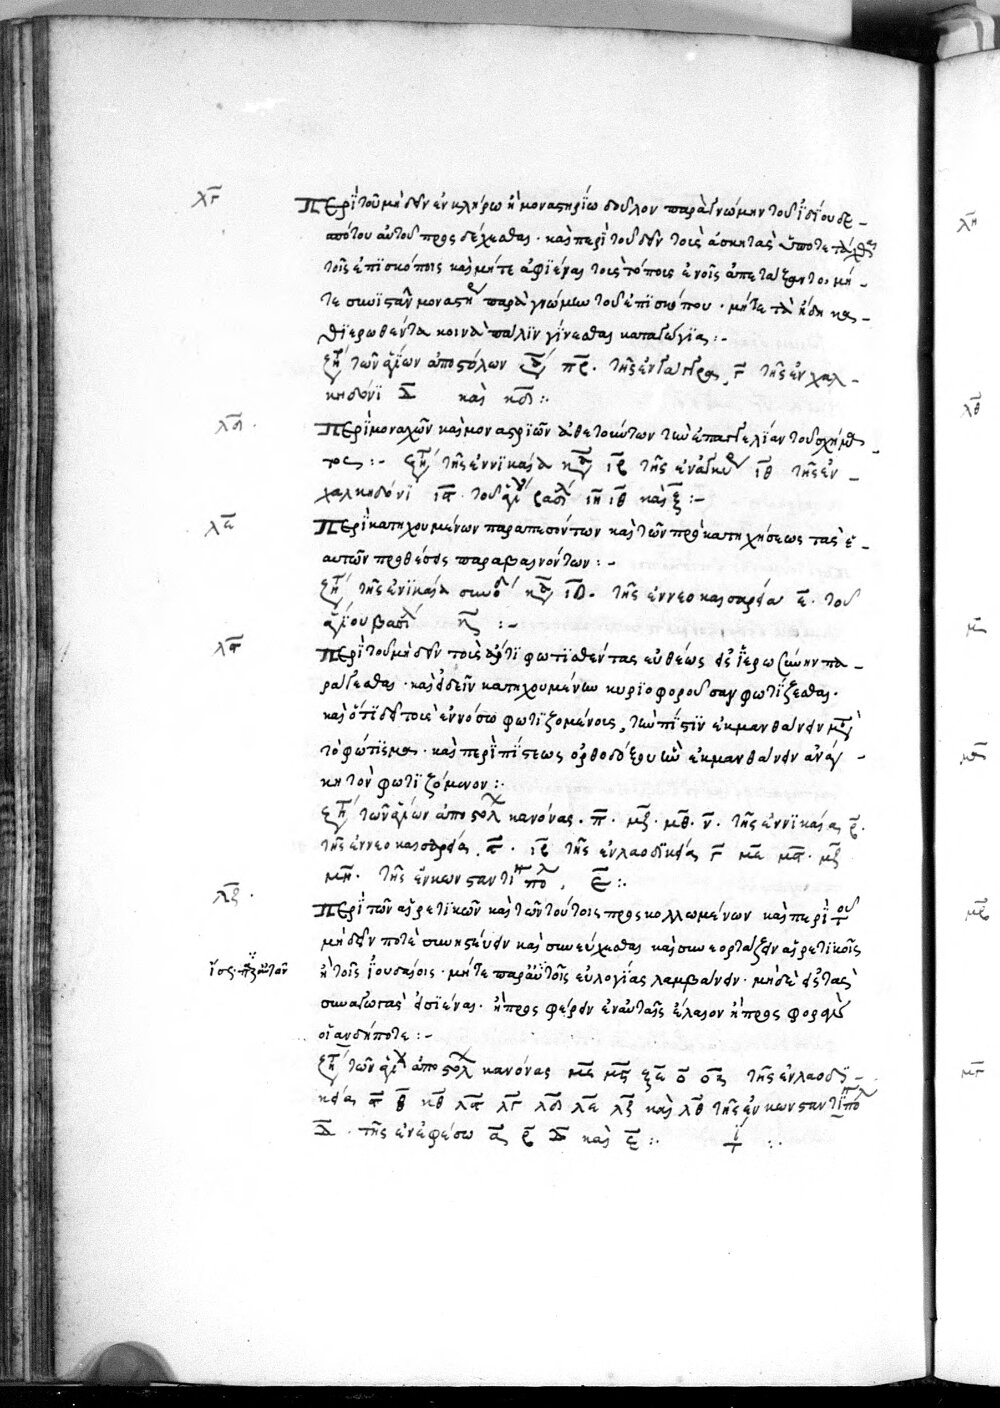 λγ
Περὶ τοῦ μὴ δεῖν ἐν κλήρω ἢ μοναστηρίω δοῦλον παρὰ γνώμην τοῦ ἰδίου δε-
σπότου αὐτοῦ προσδέχεσθαι · καὶ περὶ τοῦ δεῖν τοὺς ἀσκητὰς ὑποτετάχθαι
τοῖς ἐπισκόποις καὶ μήτε ἀφιέναι τοὺς τόπους ἐν οἷς ἀπετάξαντο · μή-
τε συνιστᾶν μοναστή παρὰ γνώμην τοῦ ἐπισκόπου · μήτε τὰ ἤδη κα-
θιερωθέντα κοινὰ πάλιν γίνεσθαι καταγώγια :-
τῶν ἁγίων ἀποστόλων πβ · τῆς ἐν γάγγρα γ τῆς ἐν χαλ-
κηδόνι δ καὶ κδ :-
λδ ·
Περὶ μοναχῶν καὶ μοναστριῶν ἀθετούντων τὴν ἐπαγγελίαν τοῦ σχήμα-
τος :- τῆς ἐν νικαία τῆς ἐν ἀγκύ ιθ τῆς ἐν
χαλκηδόνι ις · τοῦ ἁγί βασι ιη ιθ καὶ ξ :-
λε
Περὶ κατηχουμένων παραπεσόντων καὶ τῶν πρὸ κατηχήσεως τὰς ἑ-
αυτῶν προθέσεις παραβαινόντων :-
τῆς ἐν νικαία συνό ιδ · τῆς ἐν νεοκαισαρεία ε · τοῦ
ἁγίου βασι κ :-
λς
Περὶ τοῦ μὴ δεῖν τοὺς ἄρτι φωτισθέντας εὐθέως εἰς ἱερωσύνην πα-
ράγεσθαι · καὶ εἰ δεῖν κατηχουμένην κυριοφοροῦσαν φωτίζεσθαι ·
καὶ ὅτι δεῖ τοὺς ἐν νόσω φωτιζομένους, τὴν πίστιν ἐκμανθάνειν μετὰ
τὸ φώτισμα · καὶ περὶ πίστεως ὀρθοδόξου ἣν ἐκμανθάνειν ἀνάγ-
κη τὸν φωτιζόμενον :-
τῶν ἁγίων ἀποστόλ κανόνας · π · μζ · μθ · ν · τῆς ἐν νικαία β ·
τῆς ἐν νεοκαισαρεία ς · ιβ τῆς ἐν λαοδικεία γ με μς · μζ
μη · τῆς ἐν κωνσταντι πόλ, ζ :-
λζ ·
Περὶ τῶν αἱρετικῶν καὶ τῶν τούτοις προσκολλωμένων καὶ περὶ τοῦ
μὴ δεῖν ποτὲ συννηστεύειν καὶ συνεύχεσθαι καὶ συνεορτάζειν αἱρετικοῖς
ἢ τοῖς ἰουδαίοις · μήτε παρ' αὐτοῖς εὐλογίας λαμβάνειν · μηδὲ εἰς τὰς
συναγωγὰς εἰσιέναι · ἢ προσφέρειν ἐν αὐταῖς ἔλαιον ἢ προσφορὰν
οἱανδήποτε :-
τῶν ἁγί ἀποστόλ κανόνας με μς ξε ο οα τῆς ἐν λαοδι-
κεία ς θ λα λγ λδ λε λζ καὶ λθ τῆς ἐν κωνσταντι πόλ
δ · τῆς ἐν ἐφέσω α β δ καὶ ε :-
λη
λθ
μ
μα
μβ
μγ